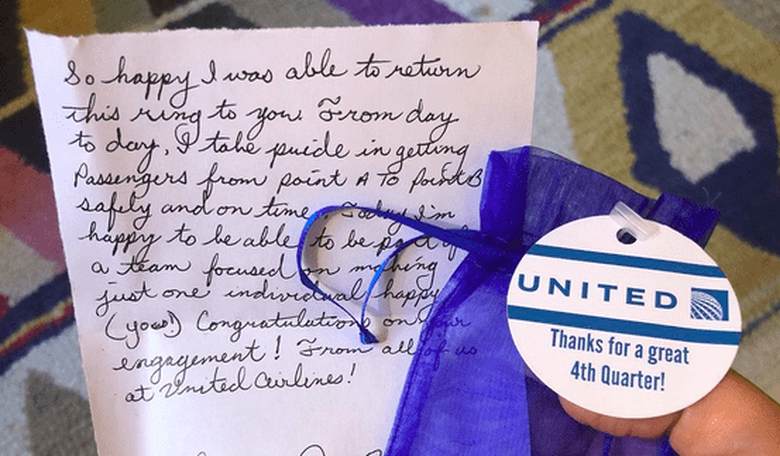 So happy I was able to return
this ring to you. From day
to day, I take puide in getting
Passengers from point A to point B
safely and on time. Today I'm
happy to be able to be part of
a team focused on making
just one individual happy
(you!) Congratulations on your
engagement! From all of us
at United Airlines!
UNITED
Thanks for a great
4th Quarter!